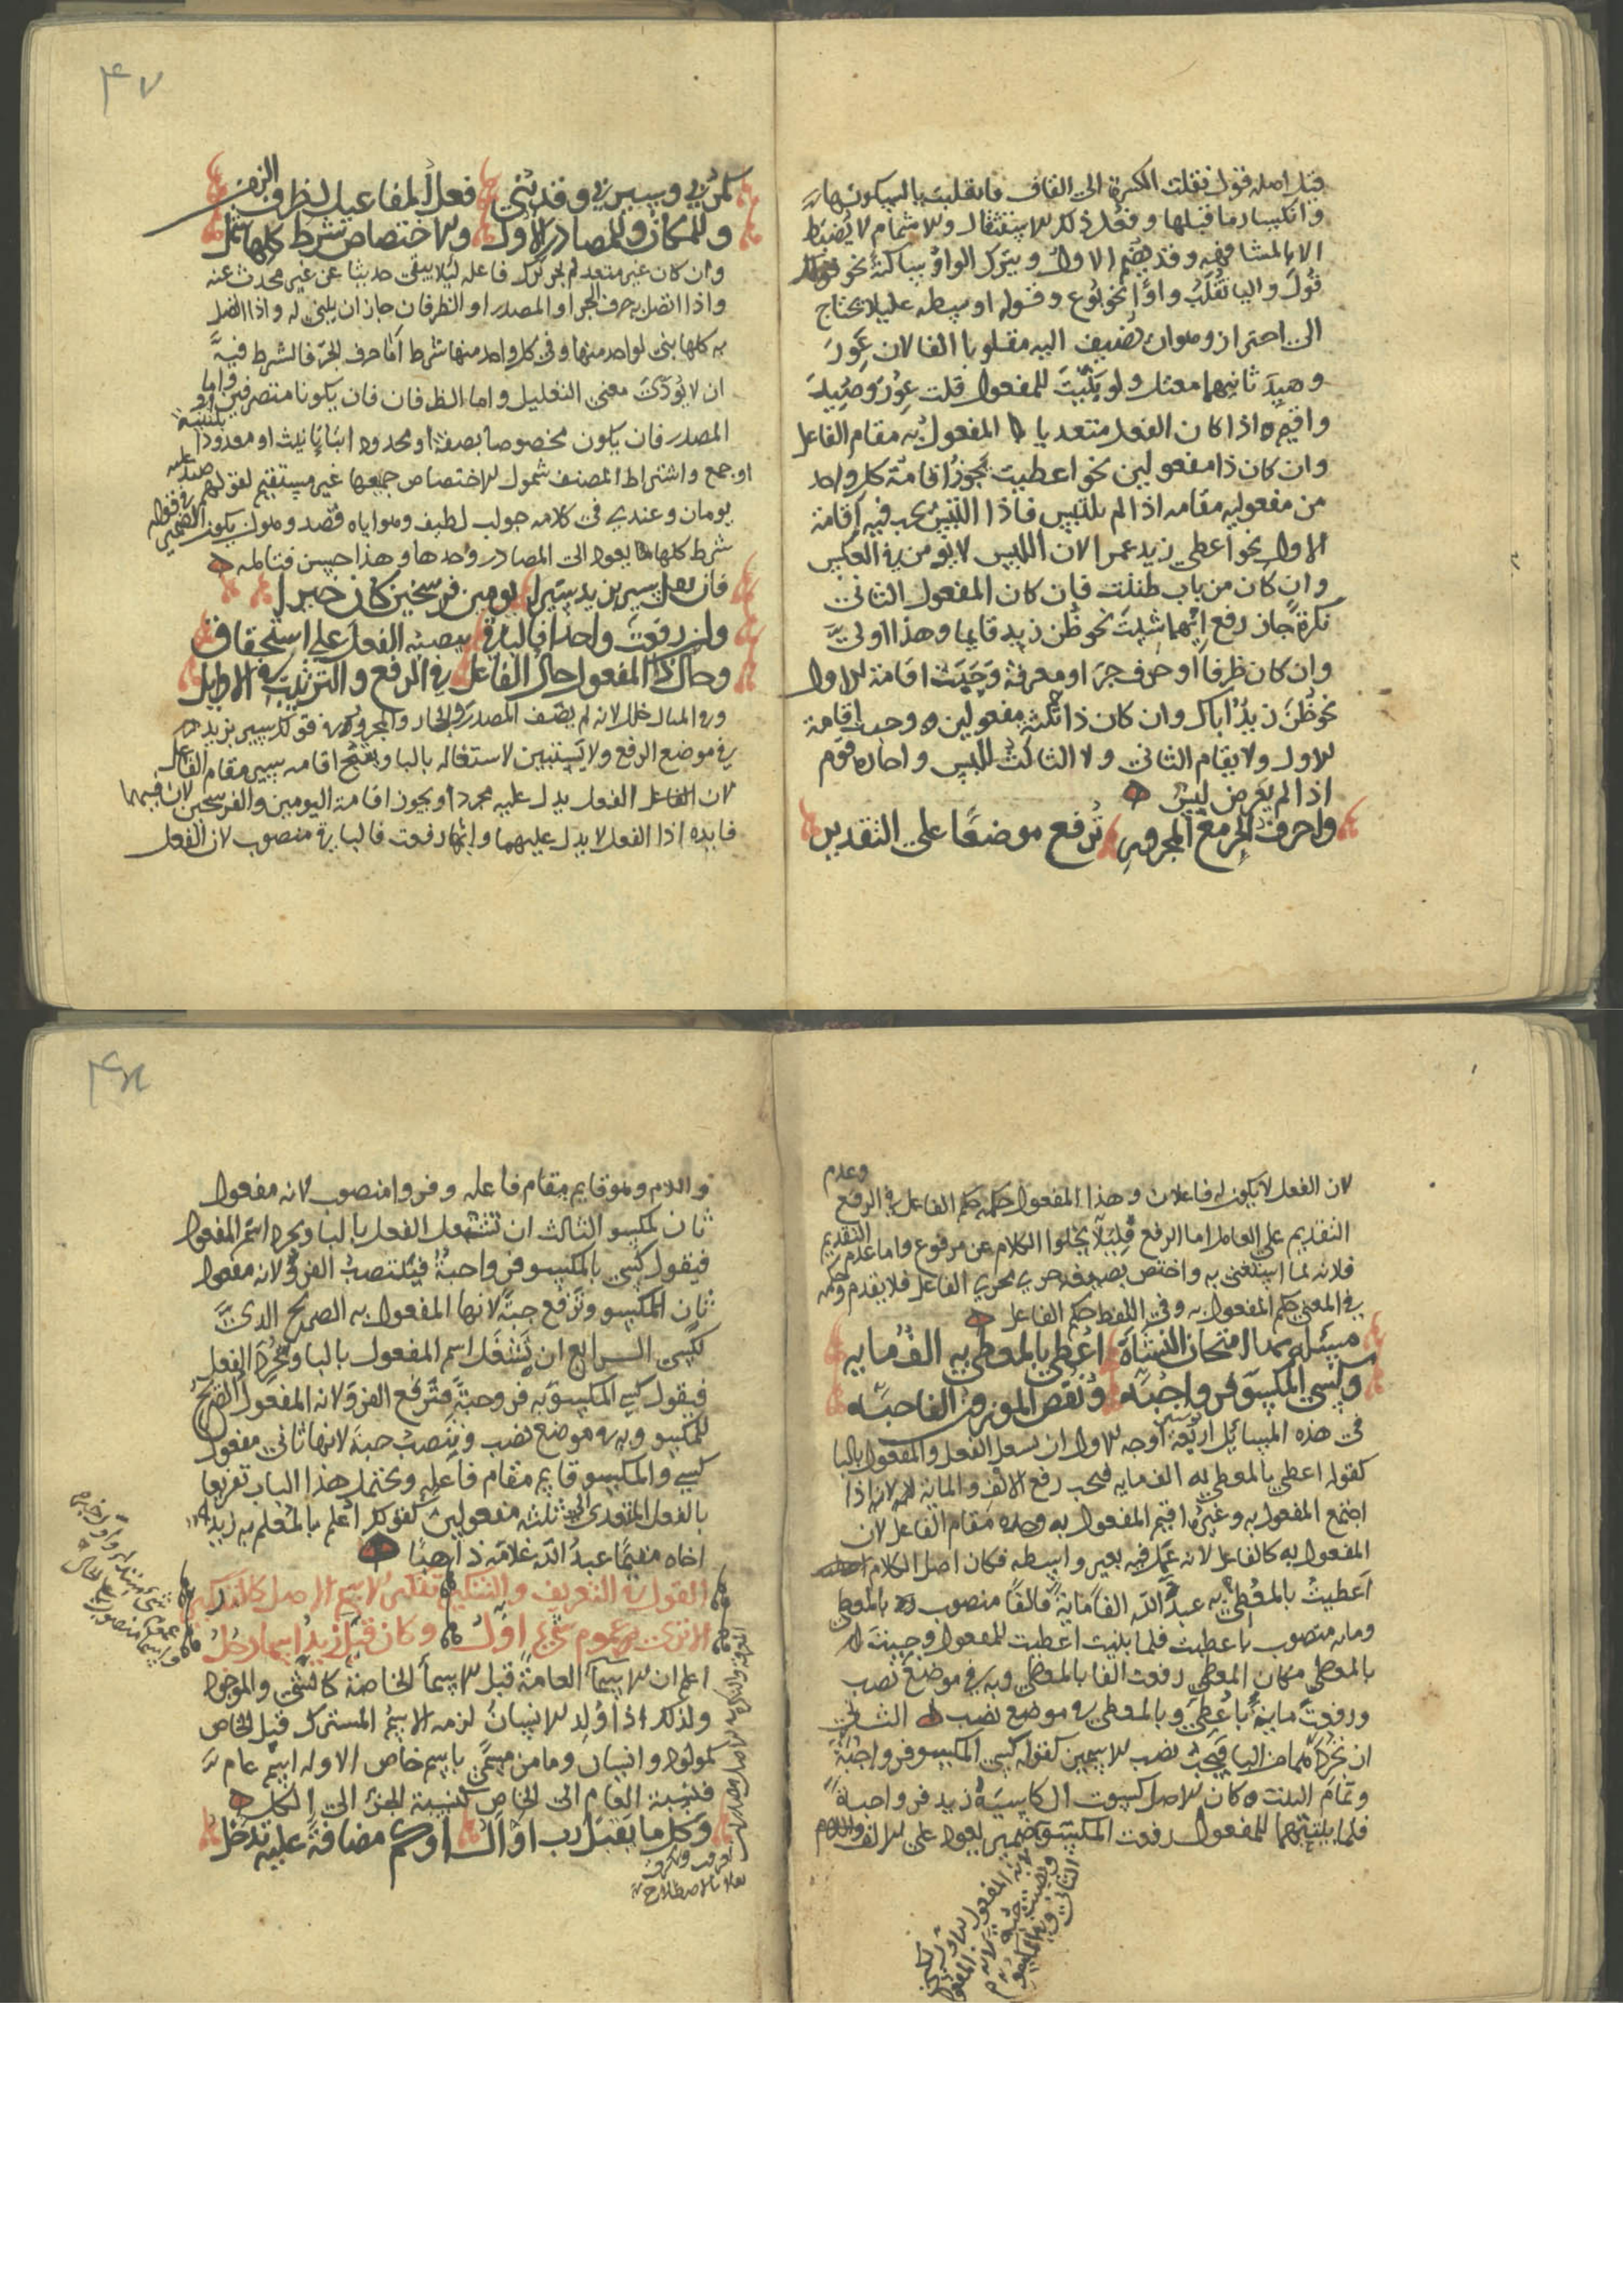 قيل اصله قول نقلت الكسرة الى القاف فانقلبت يا لسكونها
وانكسار ما قبلها وفعل ذلك للاستثقال والاشمام لا يضبط
الا بالمشافهه وقد يضم الاول ويترك الواو ساكنة نحو
قول واليا تقلب واوا نحو بوع وقوله اوسطه عليلا يحتاج
الى احتراز وهو ان يضيف اليه مقلوبا الفا لان عور
وصيد ثانيهما معتل ولو بنيت للمفعول قلت عور وصيد
واقيم ه اذا كان الفعل متعديا المفعول به مقام الفاعل
وان كان ذا مفعولين نحو اعطيت يجوز اقامة كل واحد
من مفعوليه مقامه اذا لم يلتبس فاذا التبس يجب فيه اقامة
الاول نحو اعطي زيد عمرا لان اللبس لا يومن في العكس
وان كان من باب ظننت فان كان المفعول الثاني
نكرة جاز رفع ايهما شيت نحو ظن زيد قايما وهذا اولى
وان كان ظرفا او حرف جر او معرفة وجبت اقامة الاول
نحو ظن زيد اباك وان كان ذا ثلثة مفعولين وجب اقامة
الاول ولا يقام الثاني ولا الثالث للبس واجازه قوم
اذا لم يعرض لبس
واحرف الجر مع المجرور ترفع موضعا على التقدير
۴۷
كمر بي وسير بي وقد بني فعل المفاعيل لظرف الزمن
وللمكان وللمصادر الاول والاختصاص شرط كلها شمل
وان كان غير متعد لم يجز ترك فاعله ليلا يبقى حديثا عن غير محدث عنه
واذا اتصل به حرف الجر او المصدر او الظرفان جاز ان يبنى له واذا اتصل
به كلها بني لواحد منها وفي كل واحد منها شرط اما حرف الجر فالشرط فيه
ان لا يودي معنى التعليل واما الظرفان فان يكونا متصرفين واما
المصدر فان يكون مخصوصا بصفة او محدودا بتا تانيث او معدودا بتثنية
او جمع واشتراط المصنف شمول الاختصاص جميعها غير مستقيم لقولهم صيد عليه
يومان وعندي في كلامه جواب لطيف وهو اياه قصد وهو ان يكون الضمير في قوله
شرط كلها يعود الى المصادر وحدها وهذا حسن فتامله
فان تقل سير بزيد سيرا يومين فرسخين كان خيرا
وان رفعت واحدا فالباقي ينصبه الفعل على استحقاق
وحال ذا المفعول حال الفاعل في الرفع والترتيب في الاطيل
وفي المثال خلل لانه لم يصف المصدر والجار والمجرور في قولك سير بزيد
في موضع الرفع ولا يستبين لاستغاله بالبا ويقبح اقامه سير مقام الفاعل
لان الفعل يدل عليه مجردا ويجوز اقامة اليومين والفرسخين لان فيهما
فايده اذا الفعل لا يدل عليهما وايها رفعت فالباقي منصوب لان الفعل
لان الفعل لا يكون له فاعلان وهذا المفعول حكمه حكم الفاعل في الرفع وعدم
التقديم على العامل اما الرفع فليلا يخلوا الكلام عن مرفوع واما عدم التقديم
فلانه لما استغنى به واختص بصيغه جرى مجرى الفاعل فلا يقدم وحكمه
في المعنى حكم المفعول به وفي اللفظ حكم الفاعل
مسئلة بها امتحان النشاة اعطي بالمعطى به الف مايه
وكسي المكسو فروا جبه ونقص الموزون الفا حبه
في هذه المسائل اربعة اوجه الاول ان تشغل الفعل والمفعول بالبا
كقوله اعطي بالمعطى به الف مايه فيجب رفع الالف والماية لانه اذا
اجتمع المفعول به وغيره اقيم المفعول به وحده مقام الفاعل لان
المفعول به كالفاعل لانه عمل فيه بغير واسطه فكان اصل الكلام
اعطيت بالمعطى به عبد الله الفا ماية فالفا منصوب بالمعطى
ومايه منصوب باعطيت فلما بنيت اعطيت للمفعول وجيت
بالمعطى مكان المعطي رفعت الفا بالمعطى وبه في موضع نصب
ورفعت ماية باعطي وبالمعطى في موضع نصب الثاني
ان تجردهما من البا فيجب نصب الاسمين كقوله كسي المكسو فروا جبة
وتمام البيت وكان الاصل كسوت الكاسيه زيد فروا جبة
فلما بنيتهما للمفعول رفعت المكسو وضمير يعود على الالف واللام
۴۸
واللام وهو قايم مقام فاعله وفروا منصوب لانه مفعول
ثان لمكسو الثالث ان تشغل الفعل بالبا وتجرد اسم المفعول
فيقول كسي بالمكسو فروا جبة فينتصب الفرو لانه مفعول
ثان للمكسو وترفع جبة لانها المفعول به الصريح الذي
لكسي الرابع ان تشغل اسم المفعول بالبا وتجرد الفعل
فيقول كسي المكسو به فرو جبة فترفع الفرو لانه المفعول الصريح
للمكسو وبه في موضع نصب وينصب جبة لانها ثاني مفعول
كسي والمكسو قايم مقام فاعله ويحتمل هذا الباب تفريعا
بالفعل المتعدي الى ثلثه مفعولين كقولك اعلم بالمعلم به زيد
اخاه مقيما عبد الله غلامه ذاهبا
القول في التعريف والتنكير تنكير الاسم الاصل كالمذكر
الا ترى عموم شي اول وكان قبل زيد اسما رجل
اعلم ان الاسما العامة قبل الاسما الخاصة كالشي والموجود
ولذلك اذا ولد الانسان لزمه الاسم المشترك قبل الخاص
كمولود وانسان وما من مسمى باسم خاص الا وله اسم عام
فنسبة العام الى الخاص كنسبة الجزء الى الكل
وكل ما يقبل رب او ال او كم مضافة عليه تدخل